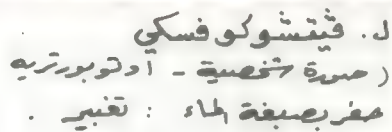 ل. ڤيتشوكوفسكي
( صورة شخصية - اوتوبورتريه
حفر بصبغة الماء : تغيير .